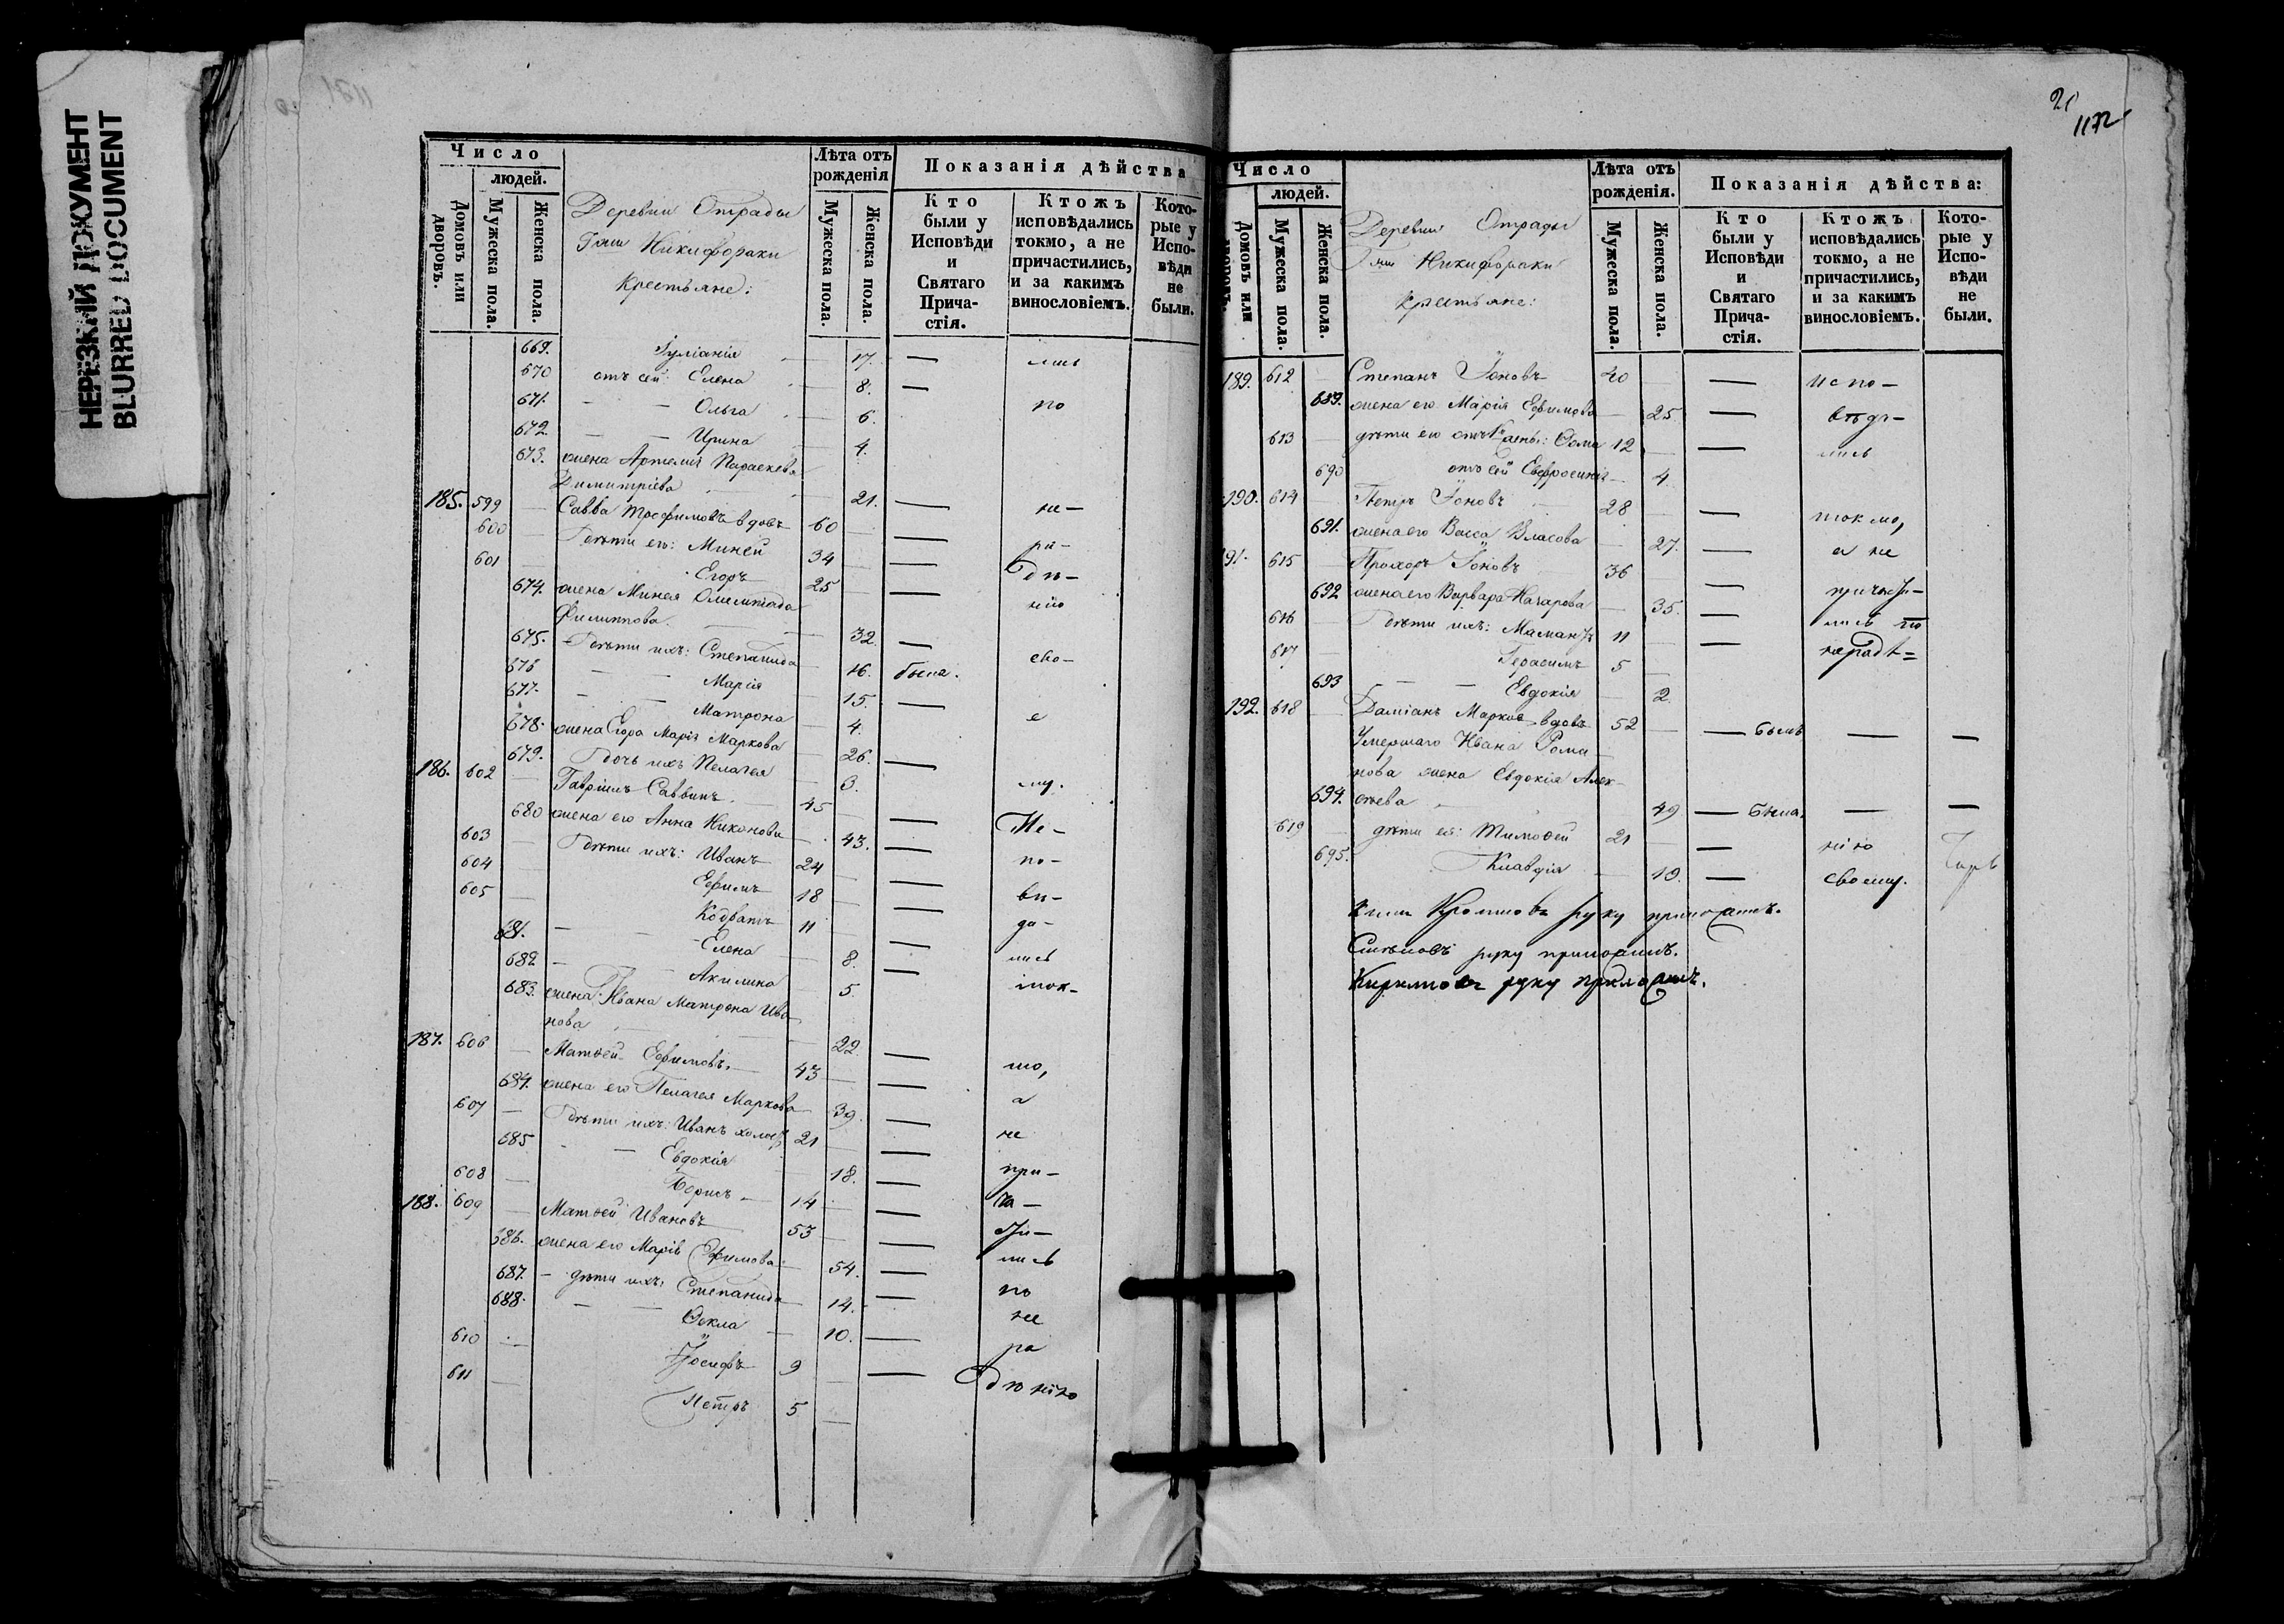 НЕРЕЗКИЙ ДОКУМЕНТ
BLURRED DOCUMENT
Число
людей.
Домовъ или дворовъ.
Мужеска пола.
Женска пола.
Деревни Отрады
Гжи Никифораки
Крестьяне:
Лѣта отъ рожденія
Мужеска пола.
Женска пола.
Показанія дѣйства
Кто были у Исповѣди и Святаго Прича-стія.
Ктожъ исповѣдались токмо, а не причастились, и за какимъ винословіемъ.
Кото-рые у Испо-вѣди не были.
669. Іуліанія 17. — лись
670 отъ сей: Елена 8. —
671. — — Ольга 6. по
672. — — Ирина 4.
673. жена Артемія Параскева
Димитріева 21. — не-
185. 599 Савва Трофимовъ вдовъ 60 —
600 Дѣти его: Миней 34 — ра-
601 Егоръ 25 — дѣ-
674. жена Минея Олимпіада нію
Филиппова 32 —
675. Дѣти ихъ: Степанида 16. была. сво-
676 — — Марія 15. —
677. — — Матрона 4. е
678. жена Егора Марія Маркова 26. —
679. Дочь ихъ Пелагея 3.
186. 602 Гавріилъ Саввинъ 45 — му.
680 жена его Анна Никонова 43. — Не-
603 Дѣти ихъ: Иванъ 24 — по-
604 Ефимъ 18 — вѣ-
605 Кодратъ 11 — да-
681. — Елена 8. — лись
682 — Акилина 5. ток-
683. жена Ивана Матрона Ива
нова 22. —
187. 606 Матѳей Ефимовъ. 43 — мо,
684. жена его Пелагея Маркова 39. а
607 Дѣти ихъ: Иванъ холостъ 21 — не
685 — Евдокія 18. — при-
608 Борисъ 14 — ча-
188. 609 Матѳей Ивановъ 53 — сти-
686. жена его Марія Ефимова 54. — лись
687. — дѣти ихъ: Степанида 14. — по
688. — — Ѳекла 10. — не
610 Іосифъ 9 — ра
611 Петръ 5 дѣнію
21
1172
Число
людей.
Домовъ или дворовъ.
Мужеска пола.
Женска пола.
Деревни Отрады
Гжи Никифораки
Крестьяне:
Лѣта отъ рожденія.
Мужеска пола.
Женска пола.
Показанія дѣйства:
Кто были у Исповѣди и Святаго Прича-стія.
Ктожъ исповѣдались токмо, а не причастились, и за какимъ винословіемъ.
Кото-рые у Испо-вѣди не были.
189. 612 Степанъ Іоновъ 40 — испо-
689. жена его Марія Ефимова 25 — вѣда-
613 дѣти его отъ 1й жены: Ѳома 12 — лись
690 отъ сей Евфросинія 4.
190. 614 Петръ Іоновъ 28 — токмо,
691. жена его Васса Власова 27. — а не
191. 615 Прохоръ Іоновъ 36 — причасти-
692 жена его Варвара Назарова 35. лись по
616 Дѣти ихъ: Мамантъ 11 — нерадѣ=
617 Герасимъ 5
693 — — Евдокія 2.
192. 618 Даміанъ Марковъ вдовъ 52 — былъ — —
Умершаго Ивана Рома
нова жена Евдокія Алек-
694. сѣева 49 — была. — —
619 дѣти ея: Тимоѳей 21 — нію
695. Клавдія 19. — своему.
руку приложилъ.
руку приложилъ.
Кирилловъ руку приложилъ.